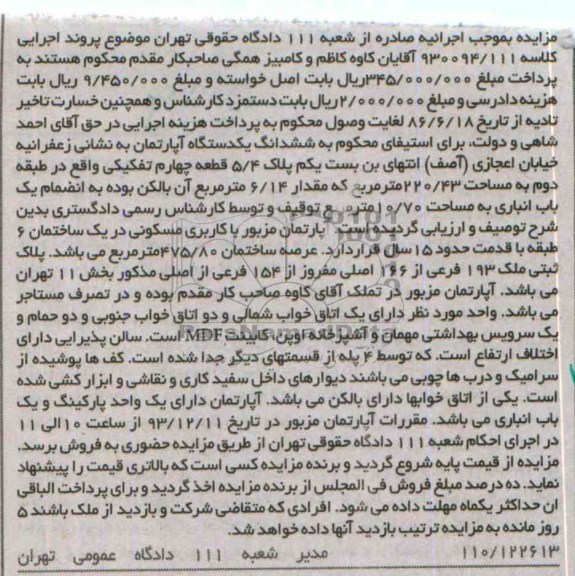 مزایده بموجب اجرائیه صادره از شعبه ۱۱۱ دادگاه حقوقی تهران موضوع پروند اجرایی
کلاسه ۹۳۰۰۹۴/۱۱۱ آقایان کاوه کاظم و کامبیز همگی صاحبکار مقدم محکوم هستند به
پرداخت مبلغ ۳۴۵/۰۰۰/۰۰۰ریال بابت اصل خواسته و مبلغ ۹/۴۵۰/۰۰۰ ریال بابت
هزینه دادرسی و مبلغ ۲/۰۰۰/۰۰۰ریال بابت دستمزد کارشناس و همچنین خسارت تاخیر
تادیه از تاریخ ۸۶/۶/۱۸ لغایت وصول محکوم به پرداخت هزینه اجرایی در حق آقای احمد
شاهی و دولت، برای استیفای محکوم به ششدانگ یکدستگاه آپارتمان به نشانی زعفرانیه
خیابان اعجازی (آصف) انتهای بن بست یکم پلاک ۵/۴ قطعه چهارم تفکیکی واقع در طبقه
دوم به مساحت ۲۲۰/۴۳مترمربع که مقدار ۶/۱۴ مترمربع آن بالکن بوده به انضمام یک
باب انباری به مساحت ۱۰/۷۰مترمربع توقیف و توسط کارشناس رسمی دادگستری بدین
شرح توصیف و ارزیابی گردیده است. آپارتمان مزبور با کاربری مسکونی در یک ساختمان ۶
طبقه با قدمت حدود ۱۵سال قرار دارد. عرصه ساختمان ۴۷۵/۸۰مترمربع می باشد. پلاک
ثبتی ملک ۱۹۳ فرعی از ۱۶۶ اصلی مفروز از ۱۵۴ فرعی از اصلی مذکور بخش ۱۱ تهران
می باشد. آپارتمان مزبور در تملک آقای کاوه صاحب کار مقدم بوده و در تصرف مستاجر
می باشد. واحد مورد نظر دارای یک اتاق خواب شمالی و دو اتاق خواب جنوبی و دو حمام و
یک سرویس بهداشتی مهمان و آشپزخانه اوپن، کابینت MDF است. سالن پذیرایی دارای
اختلاف ارتفاع است. که توسط ۴ پله از قسمتهای دیگر جدا شده است. کف ها پوشیده از
سرامیک و درب ها چوبی می باشند دیوارهای داخل سفید کاری و نقاشی و ابزار کشی شده
است. یکی از اتاق خوابها دارای بالکن می باشد. آپارتمان دارای یک واحد پارکینگ و یک
باب انباری می باشد. مقررات آپارتمان مزبور در تاریخ ۹۳/۱۲/۱۱ از ساعت ۱۰الی ۱۱
در اجرای احکام شعبه ۱۱۱ دادگاه حقوقی تهران از طریق مزایده حضوری به فروش برسد.
مزایده از قیمت پایه شروع گردید و برنده مزایده کسی است که بالاتری قیمت را پیشنهاد
نماید. ده درصد مبلغ فروش فی المجلس از برنده مزایده اخذ گردید و برای پرداخت الباقی
ان حداکثر یکماه مهلت داده می شود. افرادی که متقاضی شرکت و بازدید از ملک باشند ۵
روز مانده به مزایده ترتیب بازدید آنها داده خواهد شد.
۱۱۰/۱۲۲۶۱۳ مدیر شعبه ۱۱۱ دادگاه عمومی تهران